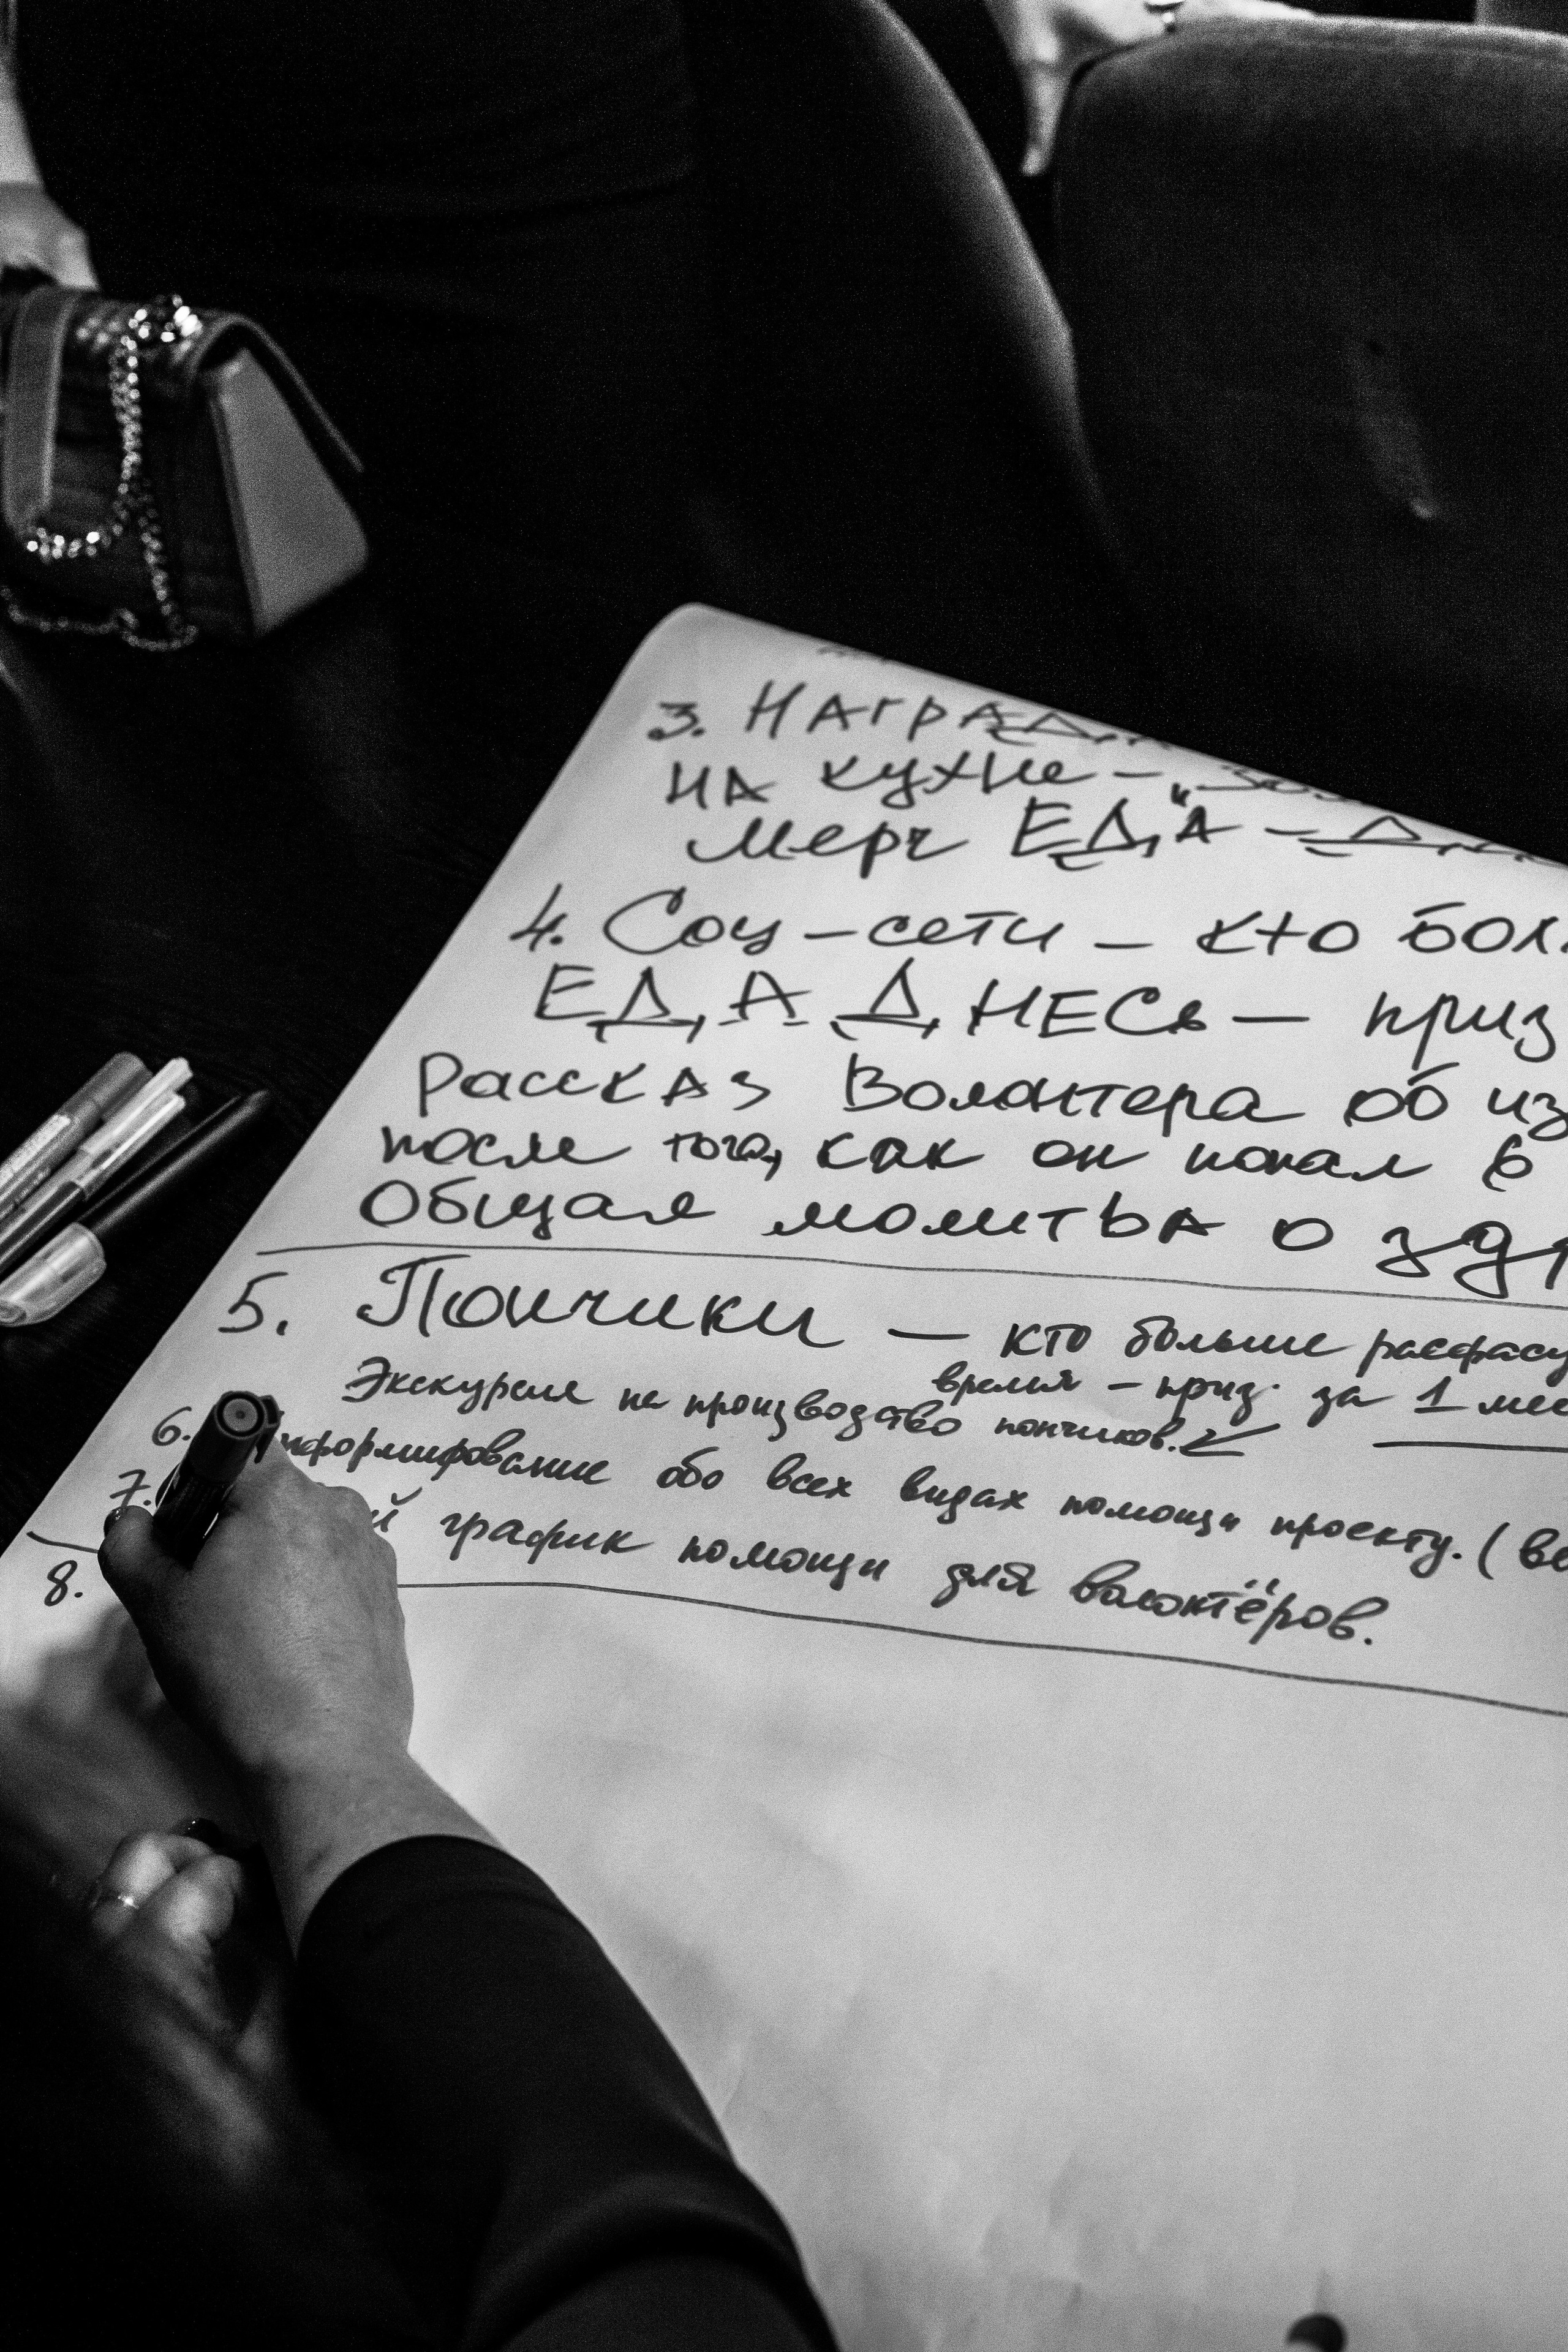 3.
на кухне –
мерч ЕДА –
4. Соц – сети – кто
ЕДА ДНЕСЬ – приз
Рассказ Волонтера об
после того, как он попал в
Общая молитва о
5. Пончики – кто больше
время – приз. за 1
Экскурсия на производство пончиков.
6. Информирование обо всех видах помощи проекту. (
7. график помощи для волонтёров.
8.